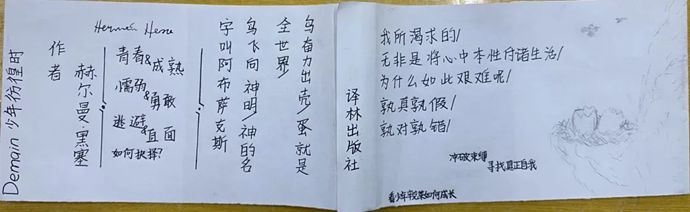 Demain 少年彷徨时
作者
赫尔曼·黑塞
Hermann Hesse
青春&成熟
懦弱&勇敢
逃避&直面
如何抉择?
鸟奋力出壳/蛋就是
全世界/
鸟飞向神明/神的名
字叫阿布萨克斯
译林出版社
我所渴求的/
无非是将心中本性付诸生活/
为什么如此艰难呢/
孰真孰假/
孰对孰错/
冲破束缚
寻找真正自我
看少年辛克莱如何成长